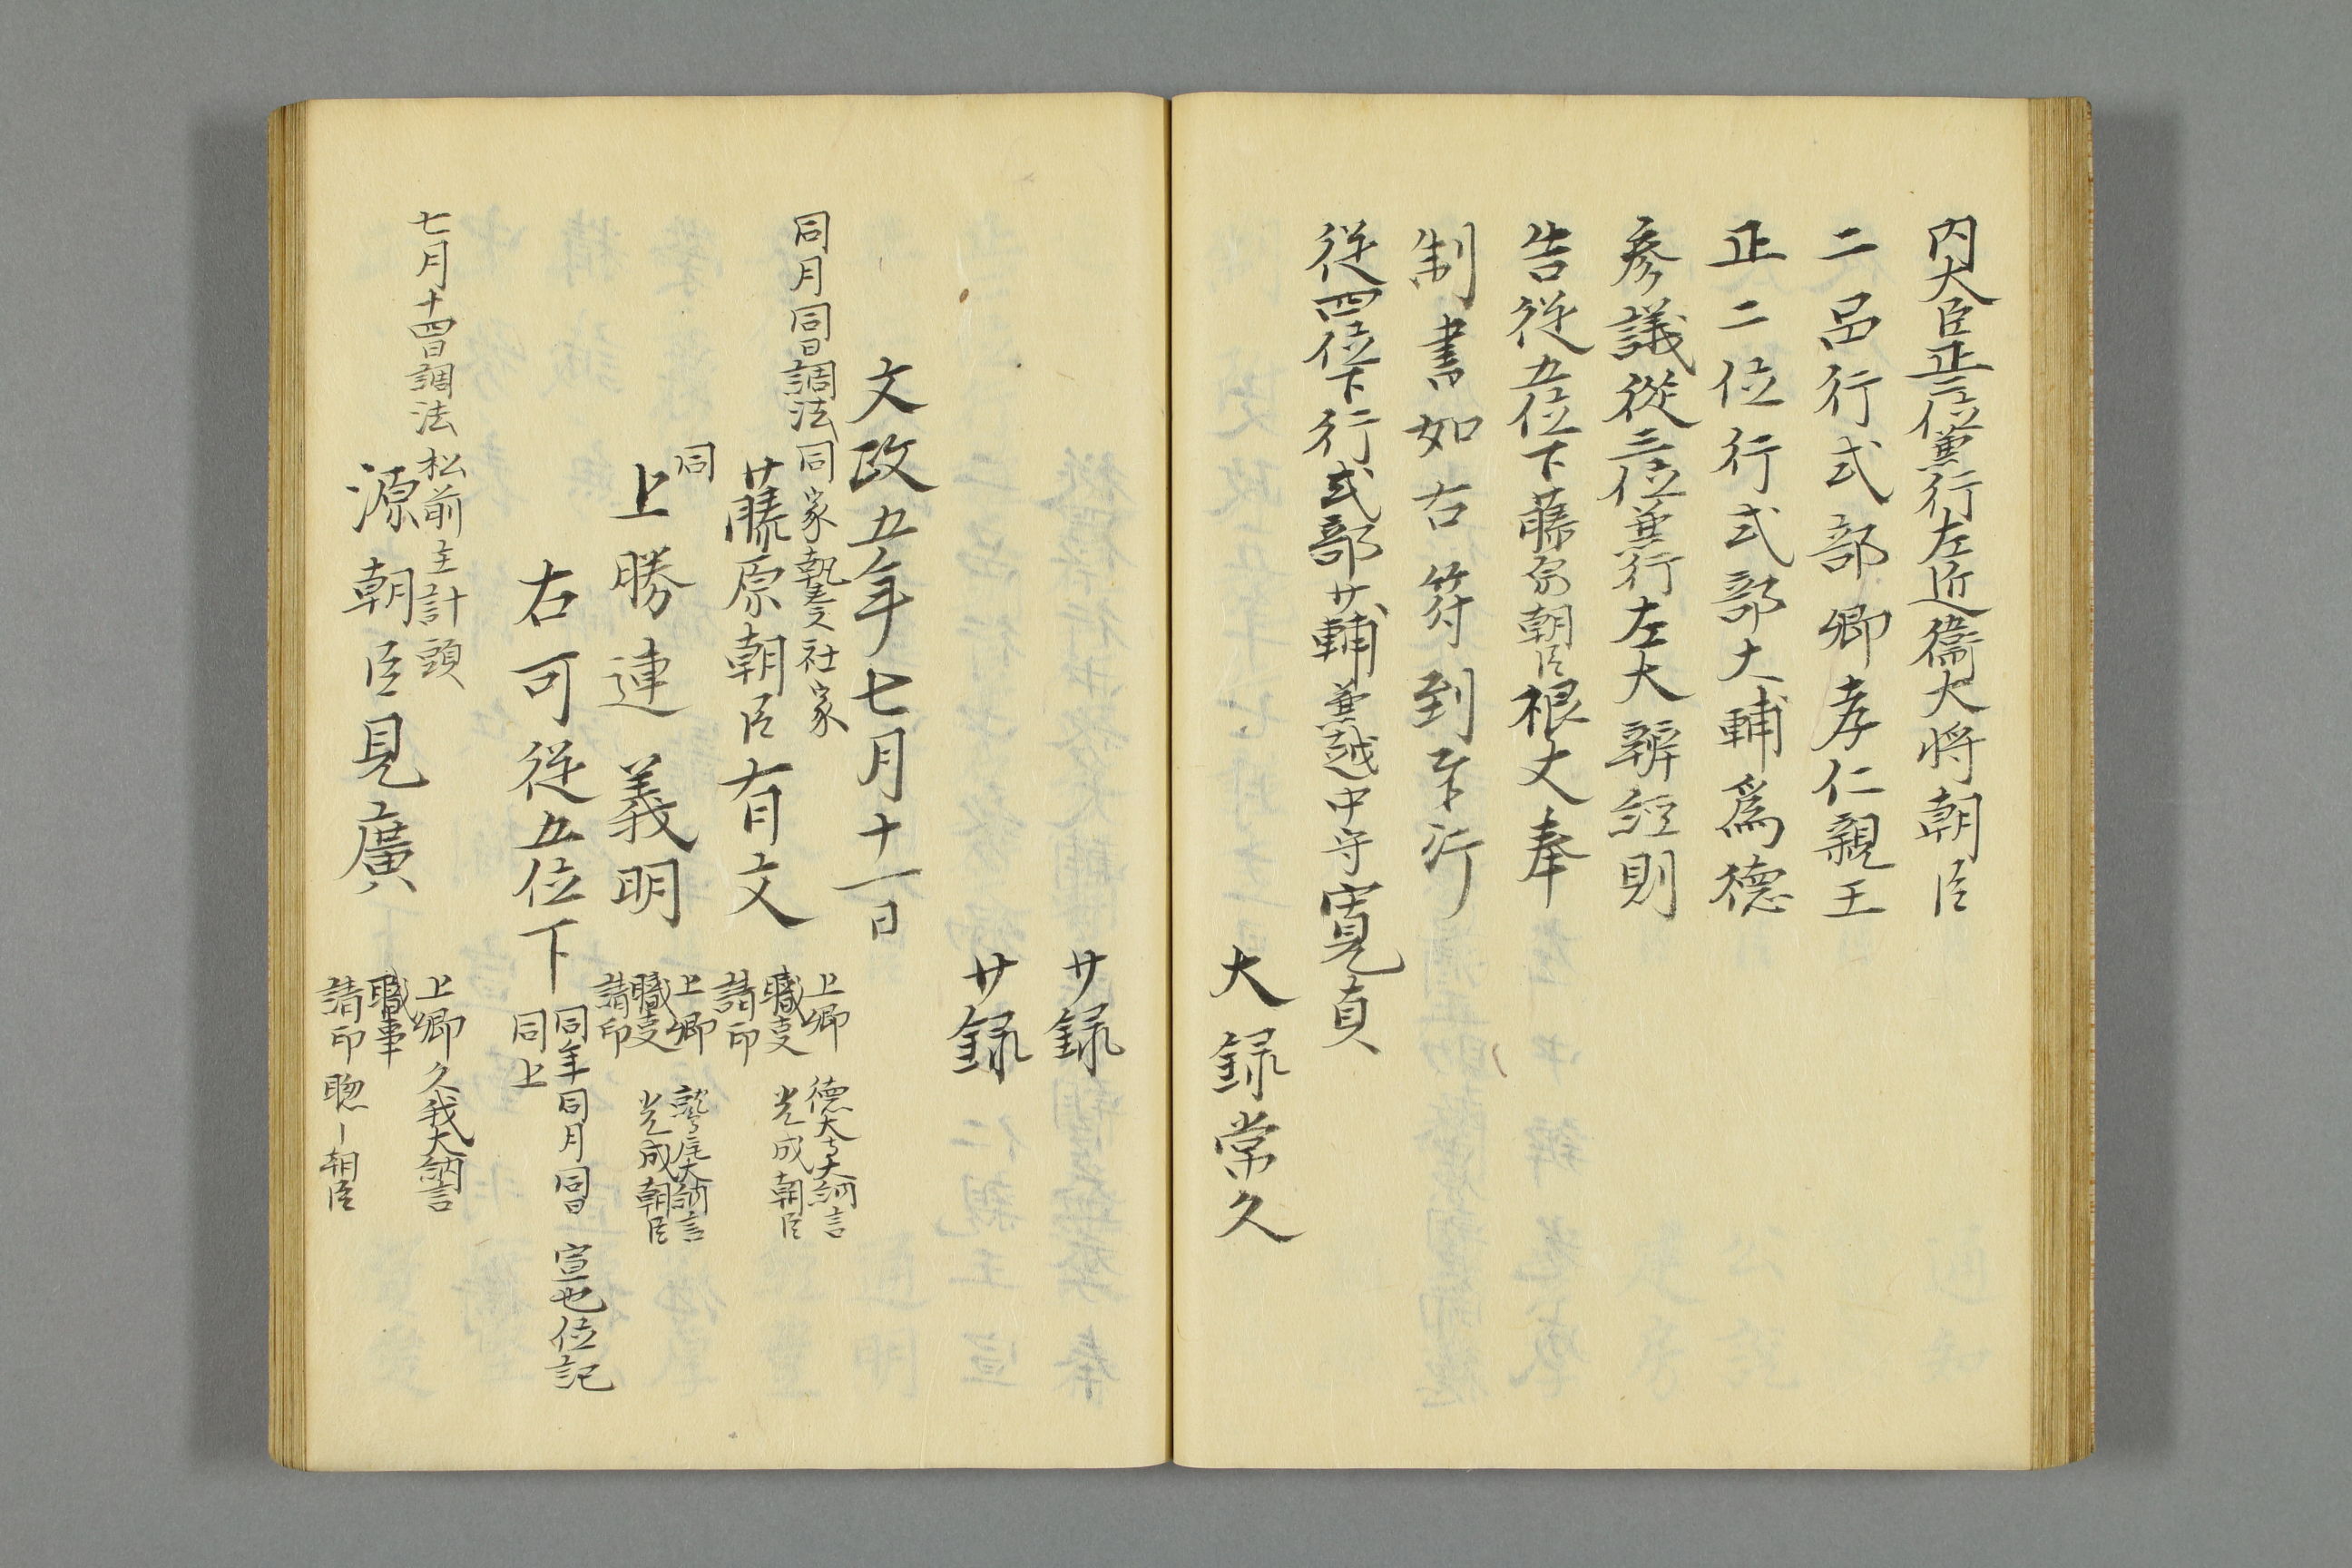 内大臣正二位兼行左近衛大将朝臣
二品行式部卿孝仁親王
正二位行式部大輔為徳
参議従三位兼行左大辨経則
告従五位下藤原朝臣根文奉
制書如右符到奉行
従四位下行式部少輔兼越中守寛貞
大録常久
少録
少録
文政五年七月十一日
同月同日調法同家執奏社家
藤原朝臣有文
上卿 徳大寺大納言
職事 光成朝臣
請印
同
上勝連義明
上卿 鷲尾大納言
職事 光成朝臣
請印
右可従五位下
同年同月同日 宣也位記
同上
七月十四日調法 松前主計頭
源朝臣見廣
上卿 久我大納言
職事
請印 聡ー朝臣